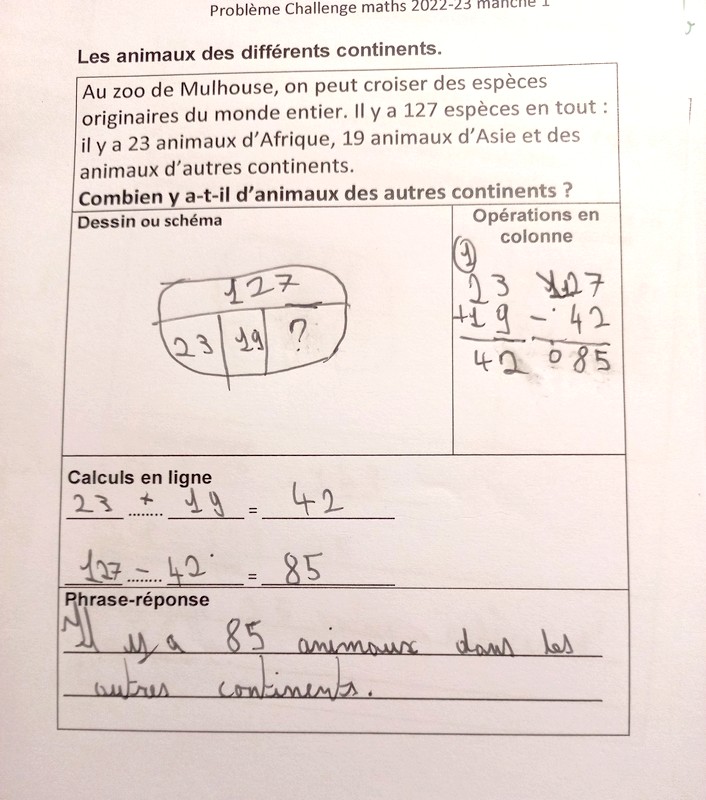 Problème Challenge maths 2022-23 manche 1
Les animaux des différents continents.
Au zoo de Mulhouse, on peut croiser des espèces
originaires du monde entier. Il y a 127 espèces en tout :
il y a 23 animaux d'Afrique, 19 animaux d'Asie et des
animaux d'autres continents.
Combien y a-t-il d'animaux des autres continents ?
Dessin ou schéma
127
23 19 ?
Opérations en
colonne
1
23 127
+19 - 42
42 085
Calculs en ligne
23 + 19 = 42
127 - 42 = 85
Phrase-réponse
Il y a 85 animaux dans les
autres continents.